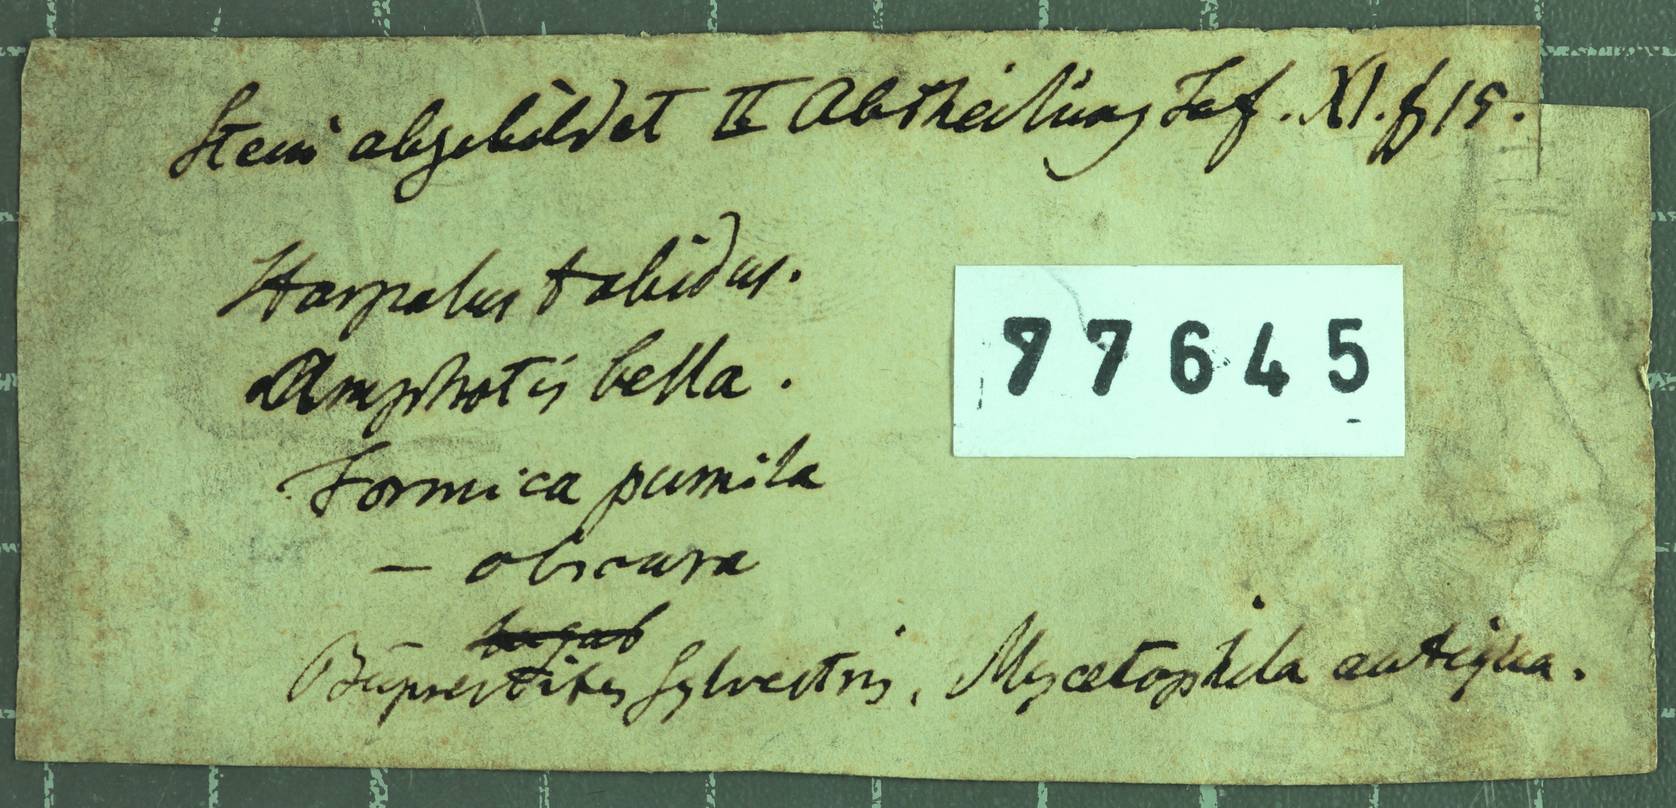 Stein abgebildet II Abtheilung Taf. XI. f 15.
Harpalus tabidus.
Amphotis bella.
77645
Formica pumila
— obscura
Buprestites sylvestris, Mycetophila antiqua.